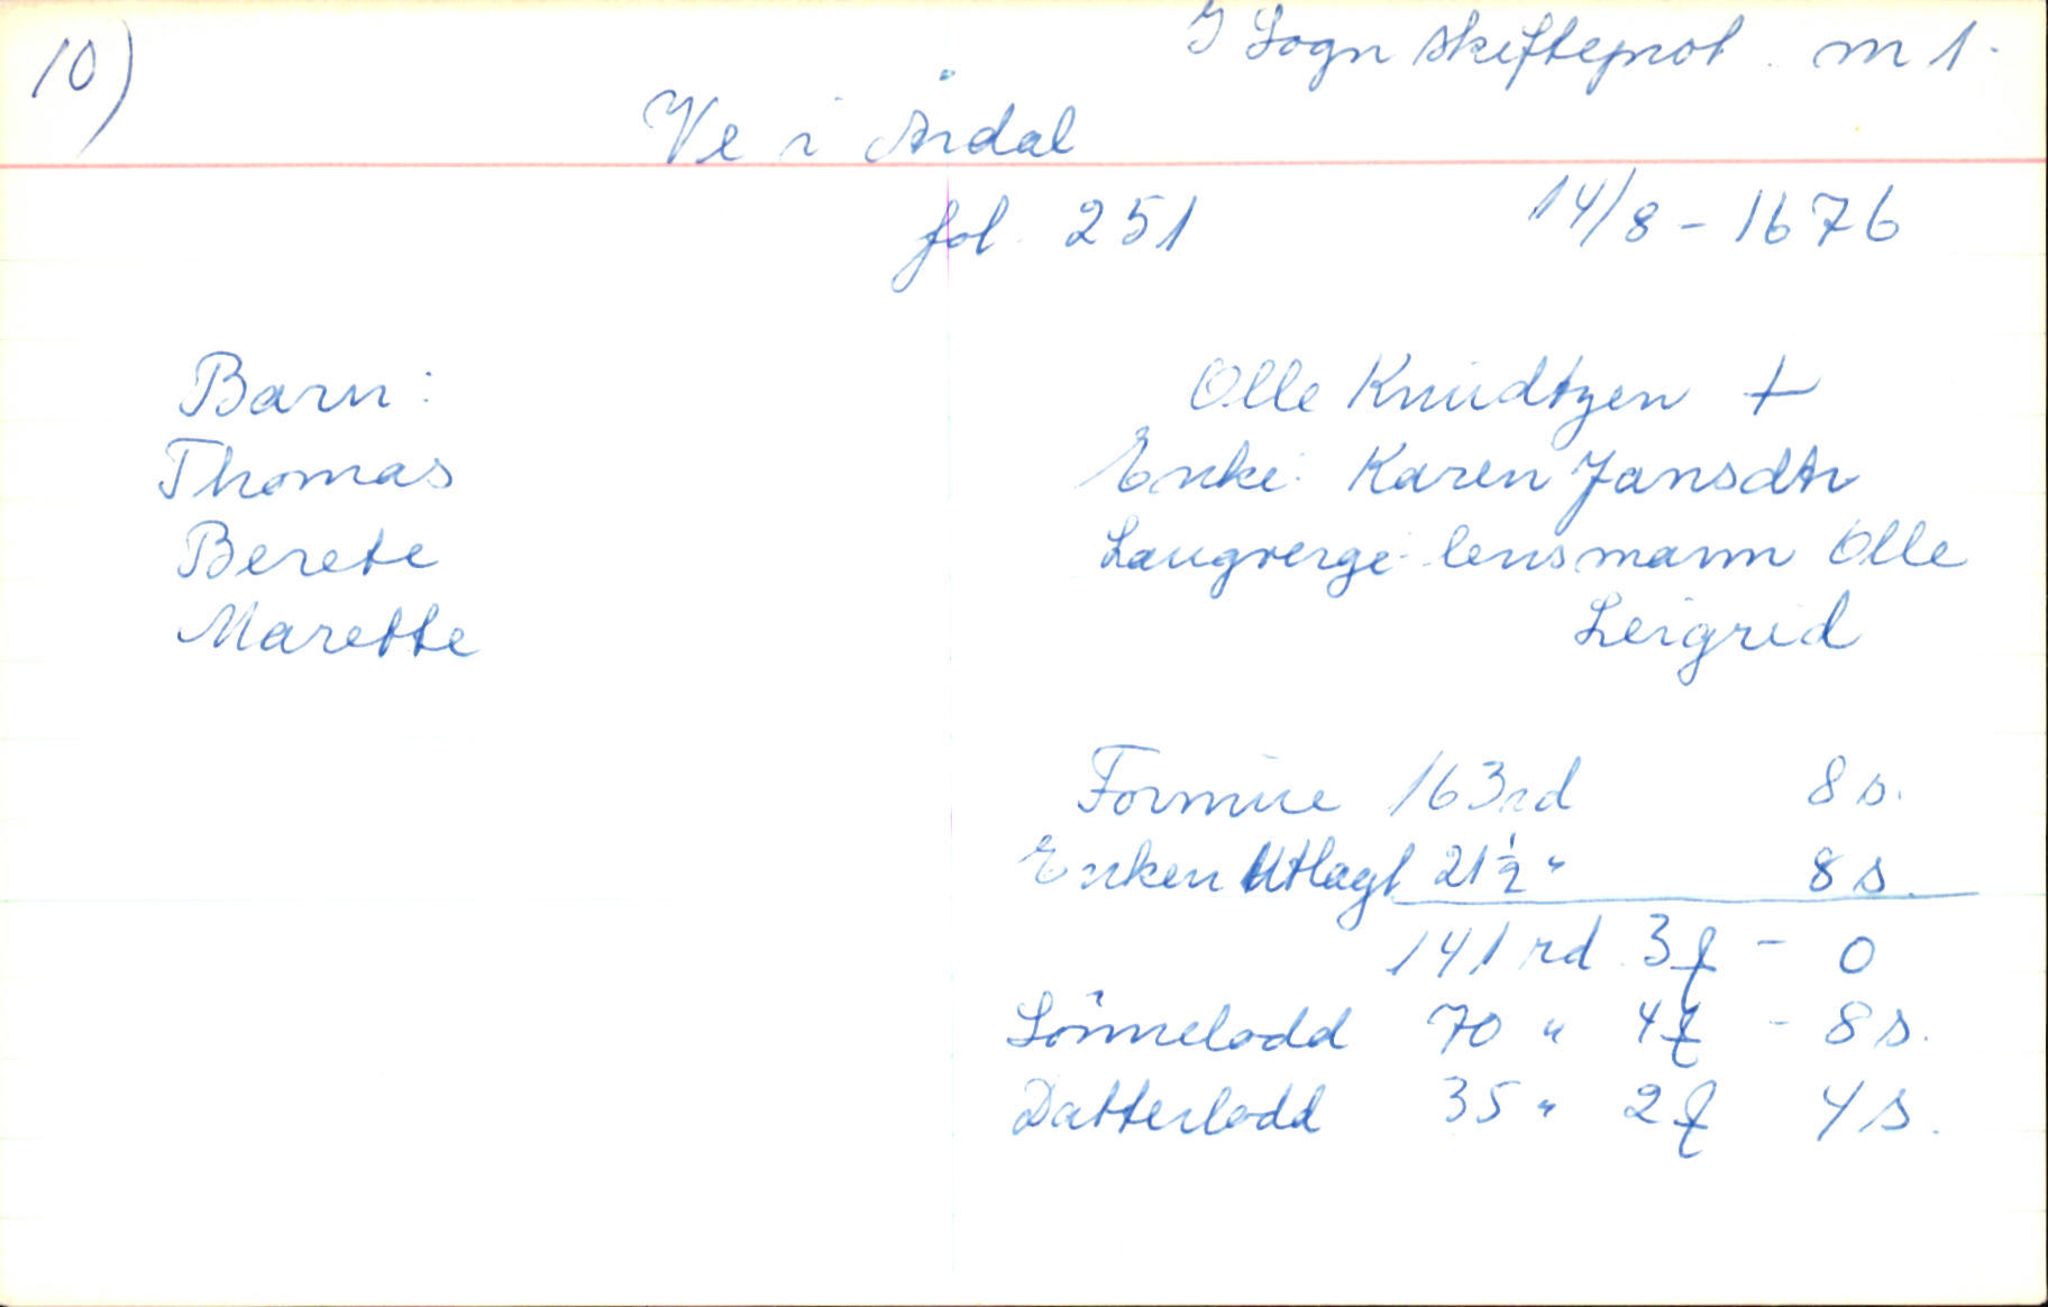 10)
I Sogn skifteprot. m 1.
Ve i Årdal
fol. 251 14/8 - 1676
Barn:
Thomas
Berete
Marette
Olle Knudtzen +
Enke: Karen Jansdtr
Laugverge lensmann Olle
Leigrid
Formue 163 rd 8 s.
Enken Utlagt 21 1/2 " 8 s.
141 rd. 3 ƒ - 0
Sönnelodd 70 " 4 ƒ - 8 s.
Datterlodd 35 " 2 ƒ 4 s.